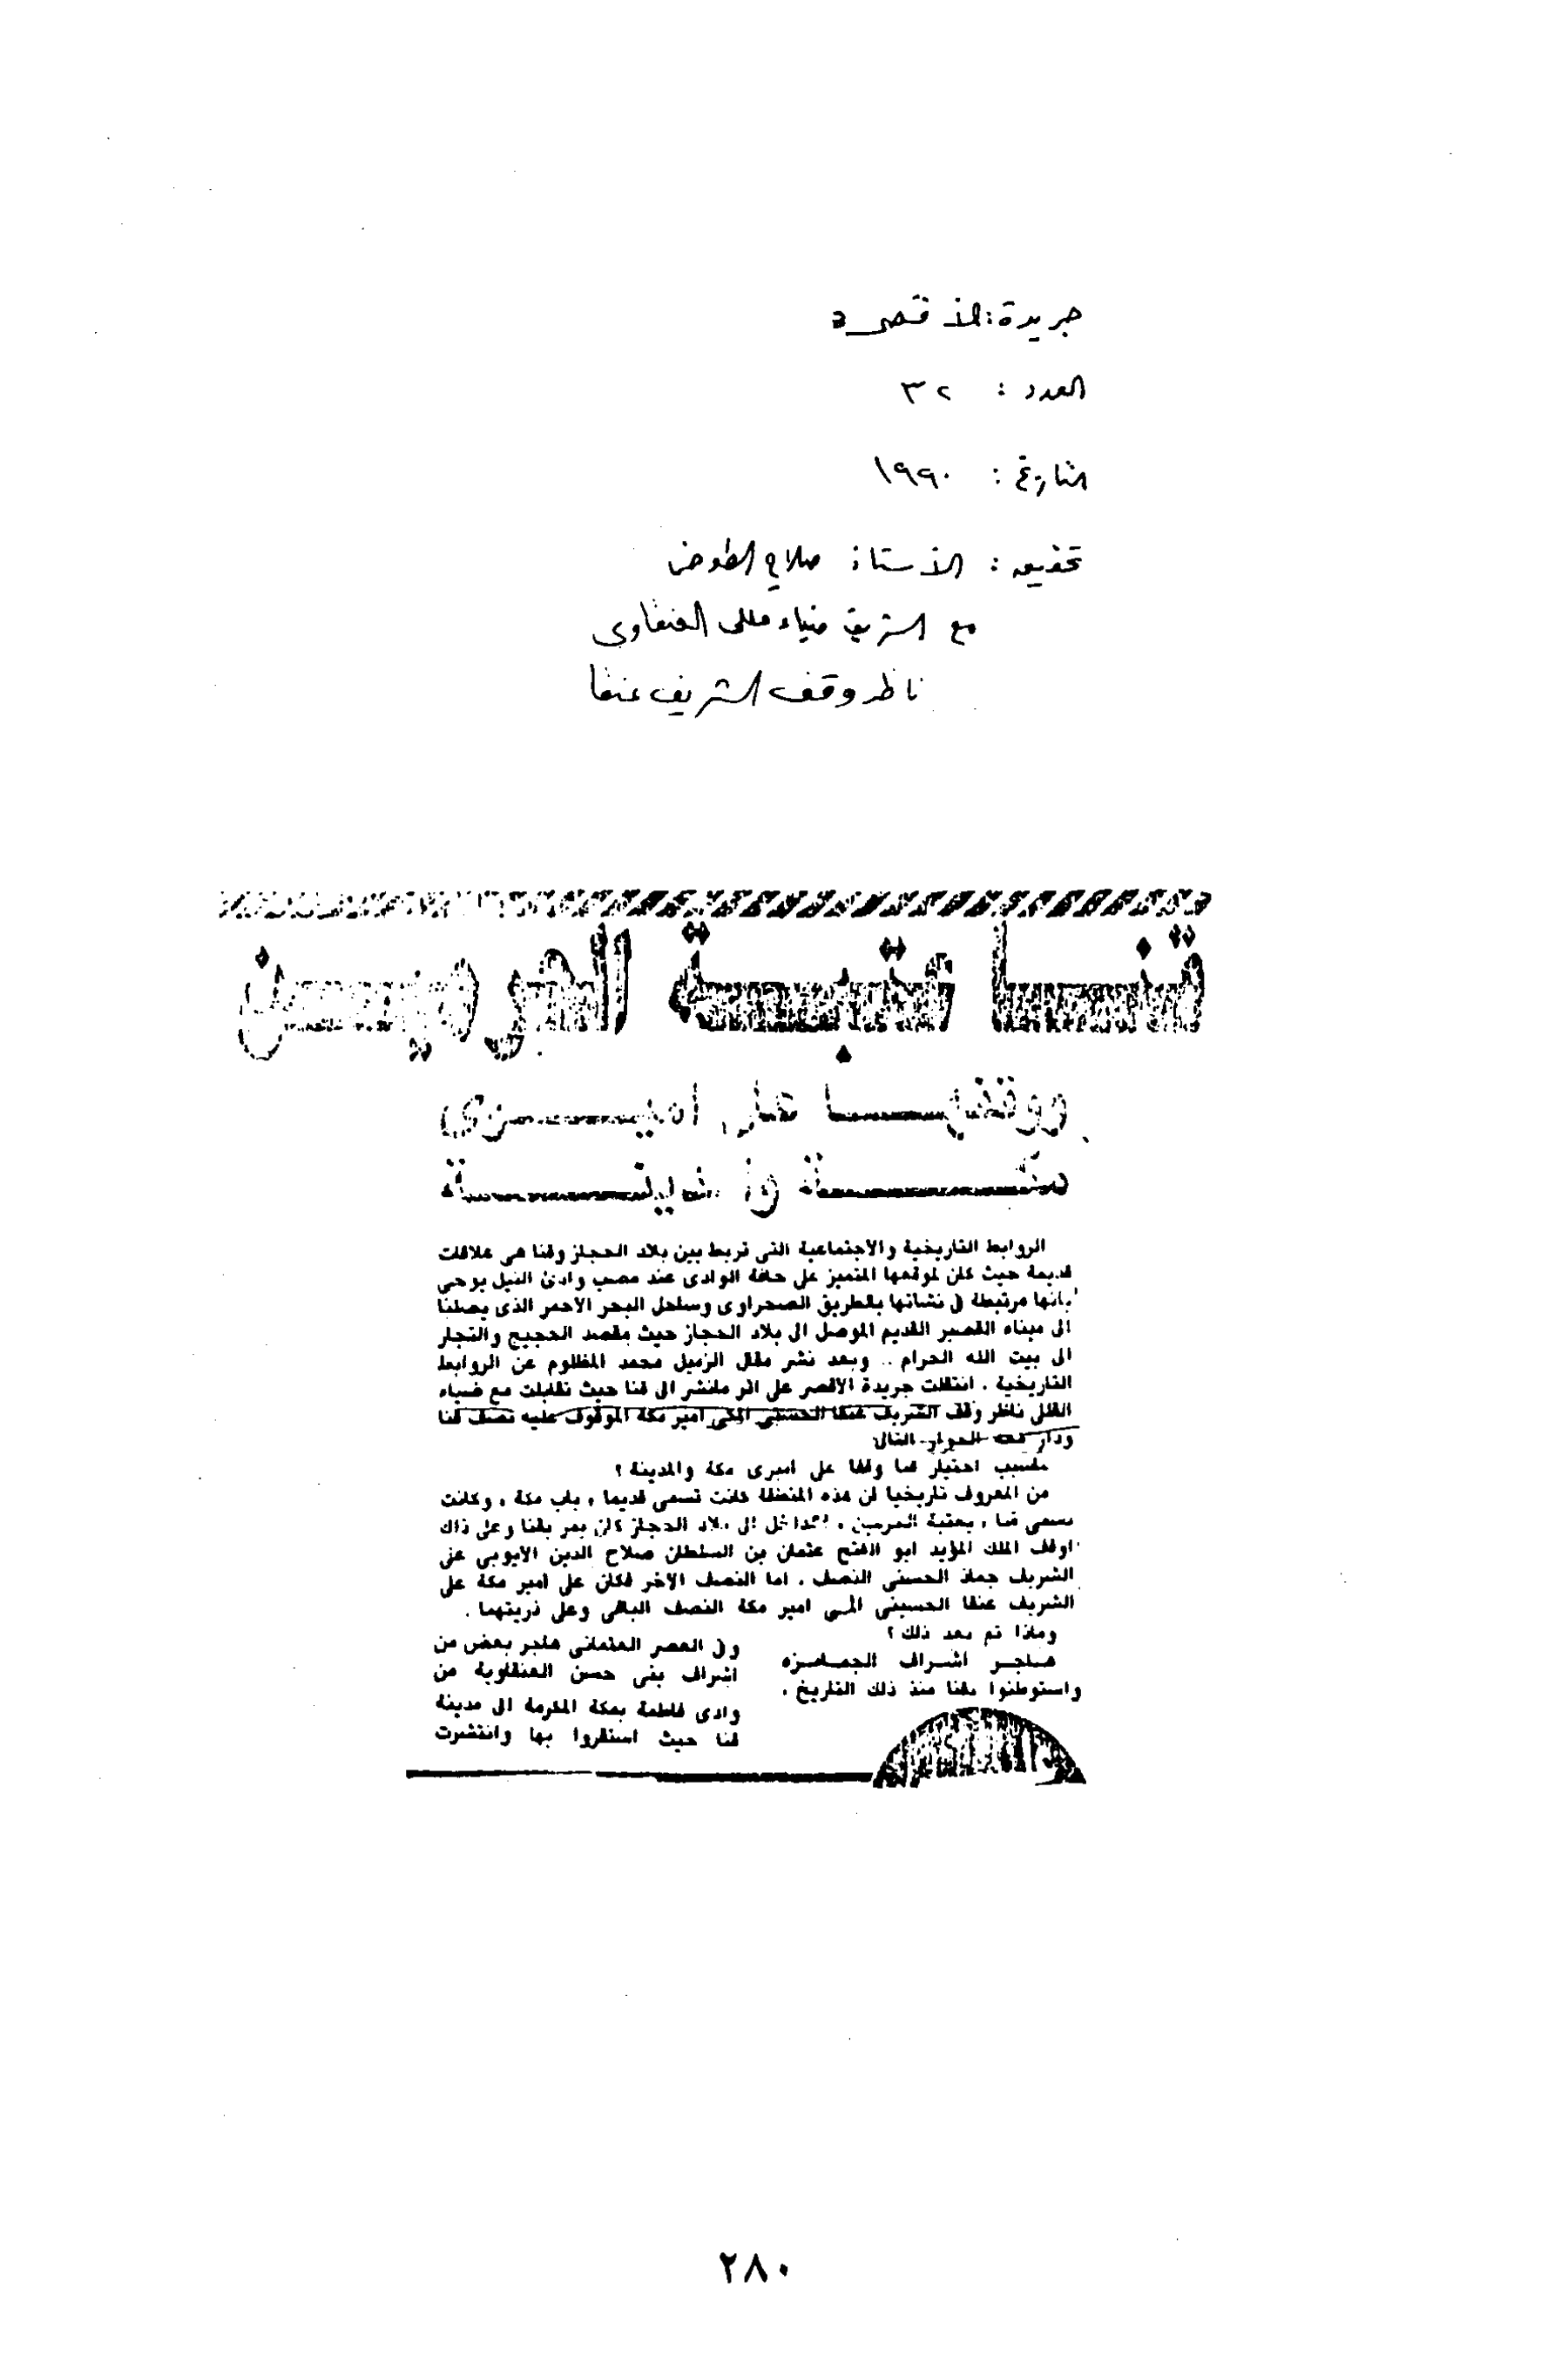 جريدة: الأقصر
العدد : ٣٢
التاريخ : ١٩٩٠
تحقيق : الأستاذ صلاح
مع الشريف ضياء العنقاوى
ناظر وقف الشريف عنقا
قنا عتبة الحرمين
ووقفها على اميرى
مكة والمدينة
الروابط التاريخية والاجتماعية التى تربط بين بلاد الحجاز وقنا هى علاقات
قديمة حيث كان لموقعها المتميز على حافة الوادى عند مصب وادى النيل يوحى
بانها مرتبطة فى نشاتها بالطريق الصحراوى وساحل البحر الاحمر الذى يصلنا
الى ميناء القصير القديم الموصل الى بلاد الحجاز حيث مقصد الحجيج والتجار
الى بيت الله الحرام .. وبعد نشر مقال الزميل محمد المظلوم عن الروابط
التاريخية . انتقلت جريدة الاقصر على اثر مانشر الى قنا حيث تقابلت مع ضياء
القللى ناظر وقف الشريف عنقا الحسنى المكى امير مكة الموقوف عليه نصف قنا
ودار معه الحوار التالى
ماسبب اختيار قنا وقفا على اميرى مكة والمدينة ؟
من المعروف تاريخيا ان هذه المنطقة كانت تسمى قديما ، باب مكة ، وكانت
تسمى قنا ، بعتبة الحرمين ، الداخل الى بلاد الحجاز كان يمر بقنا وعلى ذاك
اوقف الملك المؤيد ابو الفتح عثمان بن السلطان صلاح الدين الايوبى على
الشريف جماز الحسينى النصف . اما النصف الاخر فكان على امير مكة على
الشريف عنقا الحسينى امير مكة النصف الباقى وعلى ذريتهما .
وماذا تم بعد ذلك ؟
هاجر اشراف الجمامزه
واستوطنوا بقنا منذ ذلك التاريخ .
وفى العصر العثمانى هاجر بعض من
اشراف بنى حسن العنقاوية من
وادى فاطمة بمكة المكرمة الى مدينة
قنا حيث استقروا بها وانتشرت
٢٨٠